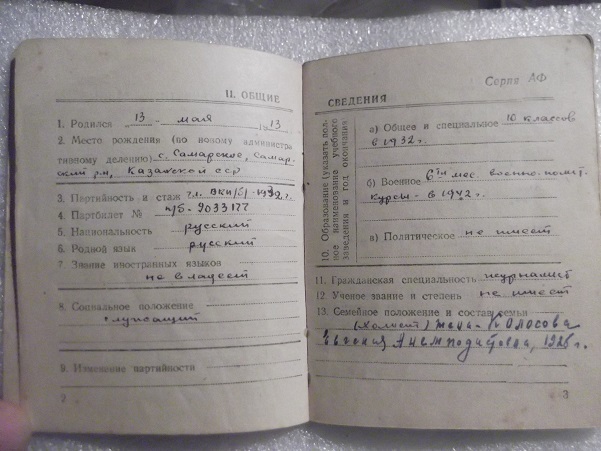 II. ОБЩИЕ
1. Родился 13 мая 1913
2. Место рождения (по новому администра
тивному делению) с. Самарское, Самар-
ский р-н, Казахской ССР
3. Партийность и стаж чл. ВКП/б/
4. Партбилет №
5. Национальность русский
6. Родной язык русский
7. Знание иностранных языков
не владеет
8. Социальное положение
служащий
9. Изменение партийности
2
Серия АФ
СВЕДЕНИЯ
10. Образование (указать пол-
ное наименование учебного
заведения и год окончания
а) Общее и специальное 10 классов
в 1932 г.
б) Военное 6ти мес. военно-полит.
курсы - в 1942 г.
в) Политическое не имеет
11. Гражданская специальность журналист
12. Ученое звание и степень не имеет
13. Семейное положение и состав семьи
(холост) жена - Колосова
Евгения Анемподистовна, 1925 г.
3